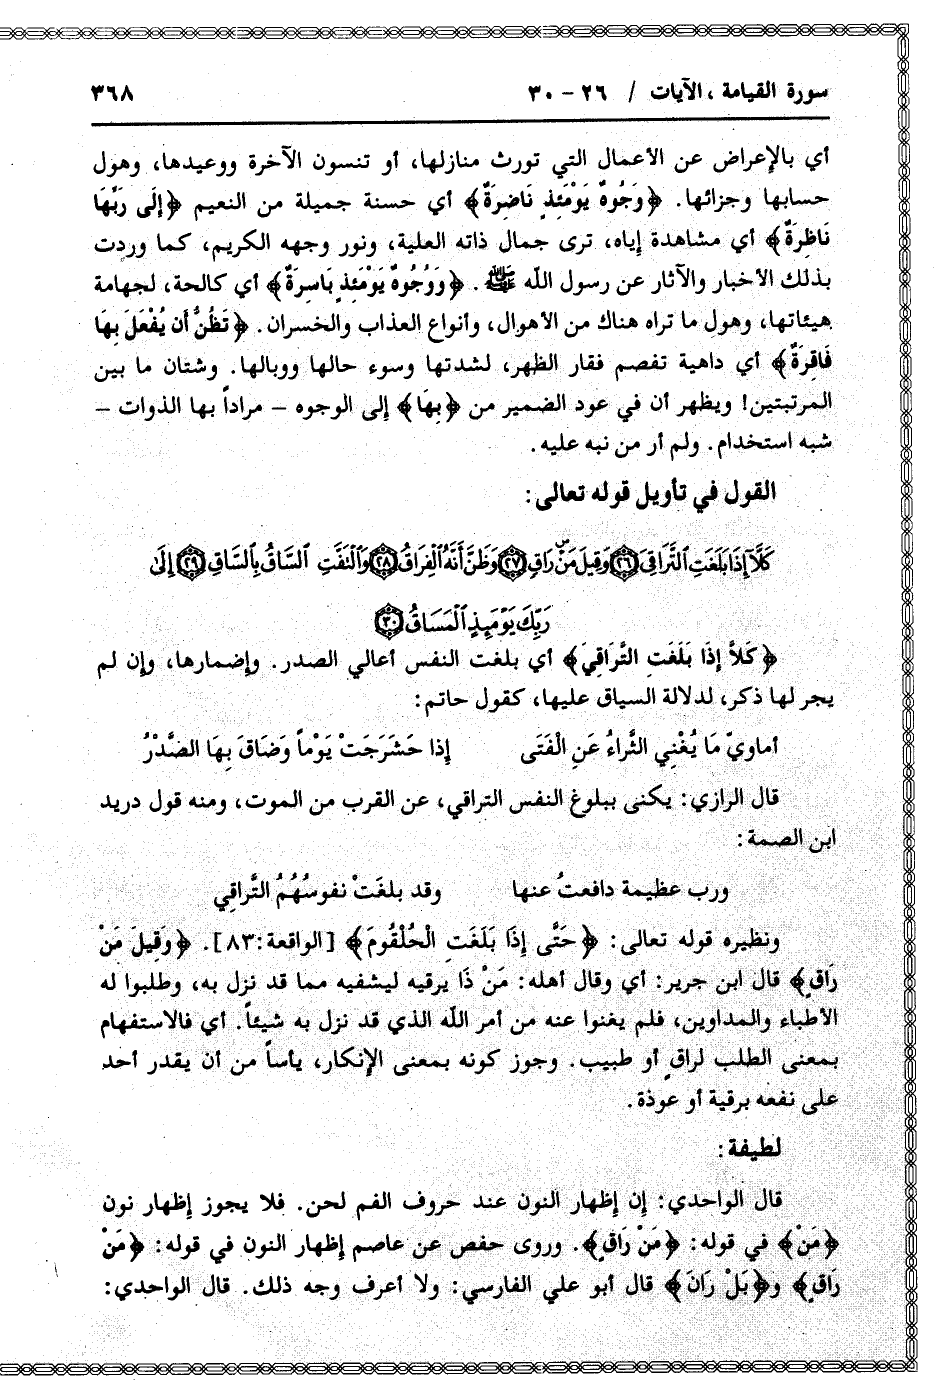 سورة القيامة ، الآيات / ٢٦ - ٣٠ ٣٦٨
أي بالإعراض عن الأعمال التي تورث منازلها، أو تنسون الآخرة ووعيدها، وهول
حسابها وجزائها. ﴿وَجُوهٌ يَوْمَئِذٍ نَاضِرَةٌ﴾ أي حسنة جميلة من النعيم ﴿إِلَى رَبِّهَا
نَاظِرَةٌ﴾ أي مشاهدة إياه، ترى جمال ذاته العلية، ونور وجهه الكريم، كما وردت
بذلك الأخبار والآثار عن رسول الله ﷺ. ﴿وَوُجُوهٌ يَوْمَئِذٍ بَاسِرَةٌ﴾ أي كالحة، لجهامة
هيئاتها، وهول ما تراه هناك من الأهوال، وأنواع العذاب والخسران. ﴿تَظُنُّ أَن يُفْعَلَ بِهَا
فَاقِرَةٌ﴾ أي داهية تفصم فقار الظهر، لشدتها وسوء حالها ووبالها. وشتان ما بين
المرتبتين! ويظهر أن في عود الضمير من ﴿بِهَا﴾ إلى الوجوه – مراداً بها الذوات –
شبه استخدام. ولم أر من نبه عليه.
القول في تأويل قوله تعالى:
كَلَّآ إِذَا بَلَغَتِ ٱلتَّرَاقِىَ ﴿٢٦﴾ وَقِيلَ مَنْ ۜ رَاقٍ ﴿٢٧﴾ وَظَنَّ أَنَّهُ ٱلْفِرَاقُ ﴿٢٨﴾ وَٱلْتَفَّتِ ٱلسَّاقُ بِٱلسَّاقِ ﴿٢٩﴾ إِلَىٰ
رَبِّكَ يَوْمَئِذٍ ٱلْمَسَاقُ ﴿٣٠﴾
﴿كَلاَّ إِذَا بَلَغَتِ التَّرَاقِيَ﴾ أي بلغت النفس أعالي الصدر. وإضمارها، وإن لم
يجر لها ذكر، لدلالة السياق عليها، كقول حاتم:
أماويّ مَا يُغْنِي الثَّراءُ عَنِ الْفَتَى إِذا حَشَرَجَتْ يَوْماً وَضَاقَ بِهَا الصَّدْرُ
قال الرازي: يكنى ببلوغ النفس التراقي، عن القرب من الموت، ومنه قول دريد
ابن الصمة:
ورب عظيمة دافعتُ عنها وقد بلغَتْ نفوسُهُمُ التَّراقِي
ونظيره قوله تعالى: ﴿حَتَّى إِذَا بَلَغَتِ الْحُلْقُومَ﴾ [الواقعة:٨٣]. ﴿وَقِيلَ مَنْ
رَاقٍ﴾ قال ابن جرير: أي وقال أهله: مَنْ ذَا يرقيه ليشفيه مما قد نزل به، وطلبوا له
الأطباء والمداوين، فلم يغنوا عنه من أمر الله الذي قد نزل به شيئاً. أي فالاستفهام
بمعنى الطلب لراقٍ أو طبيب. وجوز كونه بمعنى الإنكار، يأساً من أن يقدر أحد
على نفعه برقية أو عوذة.
لطيفة:
قال الواحدي: إن إظهار النون عند حروف الفم لحن. فلا يجوز إظهار نون
﴿مَنْ﴾ في قوله: ﴿مَنْ رَاقٍ﴾. وروى حفص عن عاصم إظهار النون في قوله: ﴿مَنْ
رَاقٍ﴾ و﴿بَلْ رَانَ﴾ قال أبو علي الفارسي: ولا أعرف وجه ذلك. قال الواحدي: